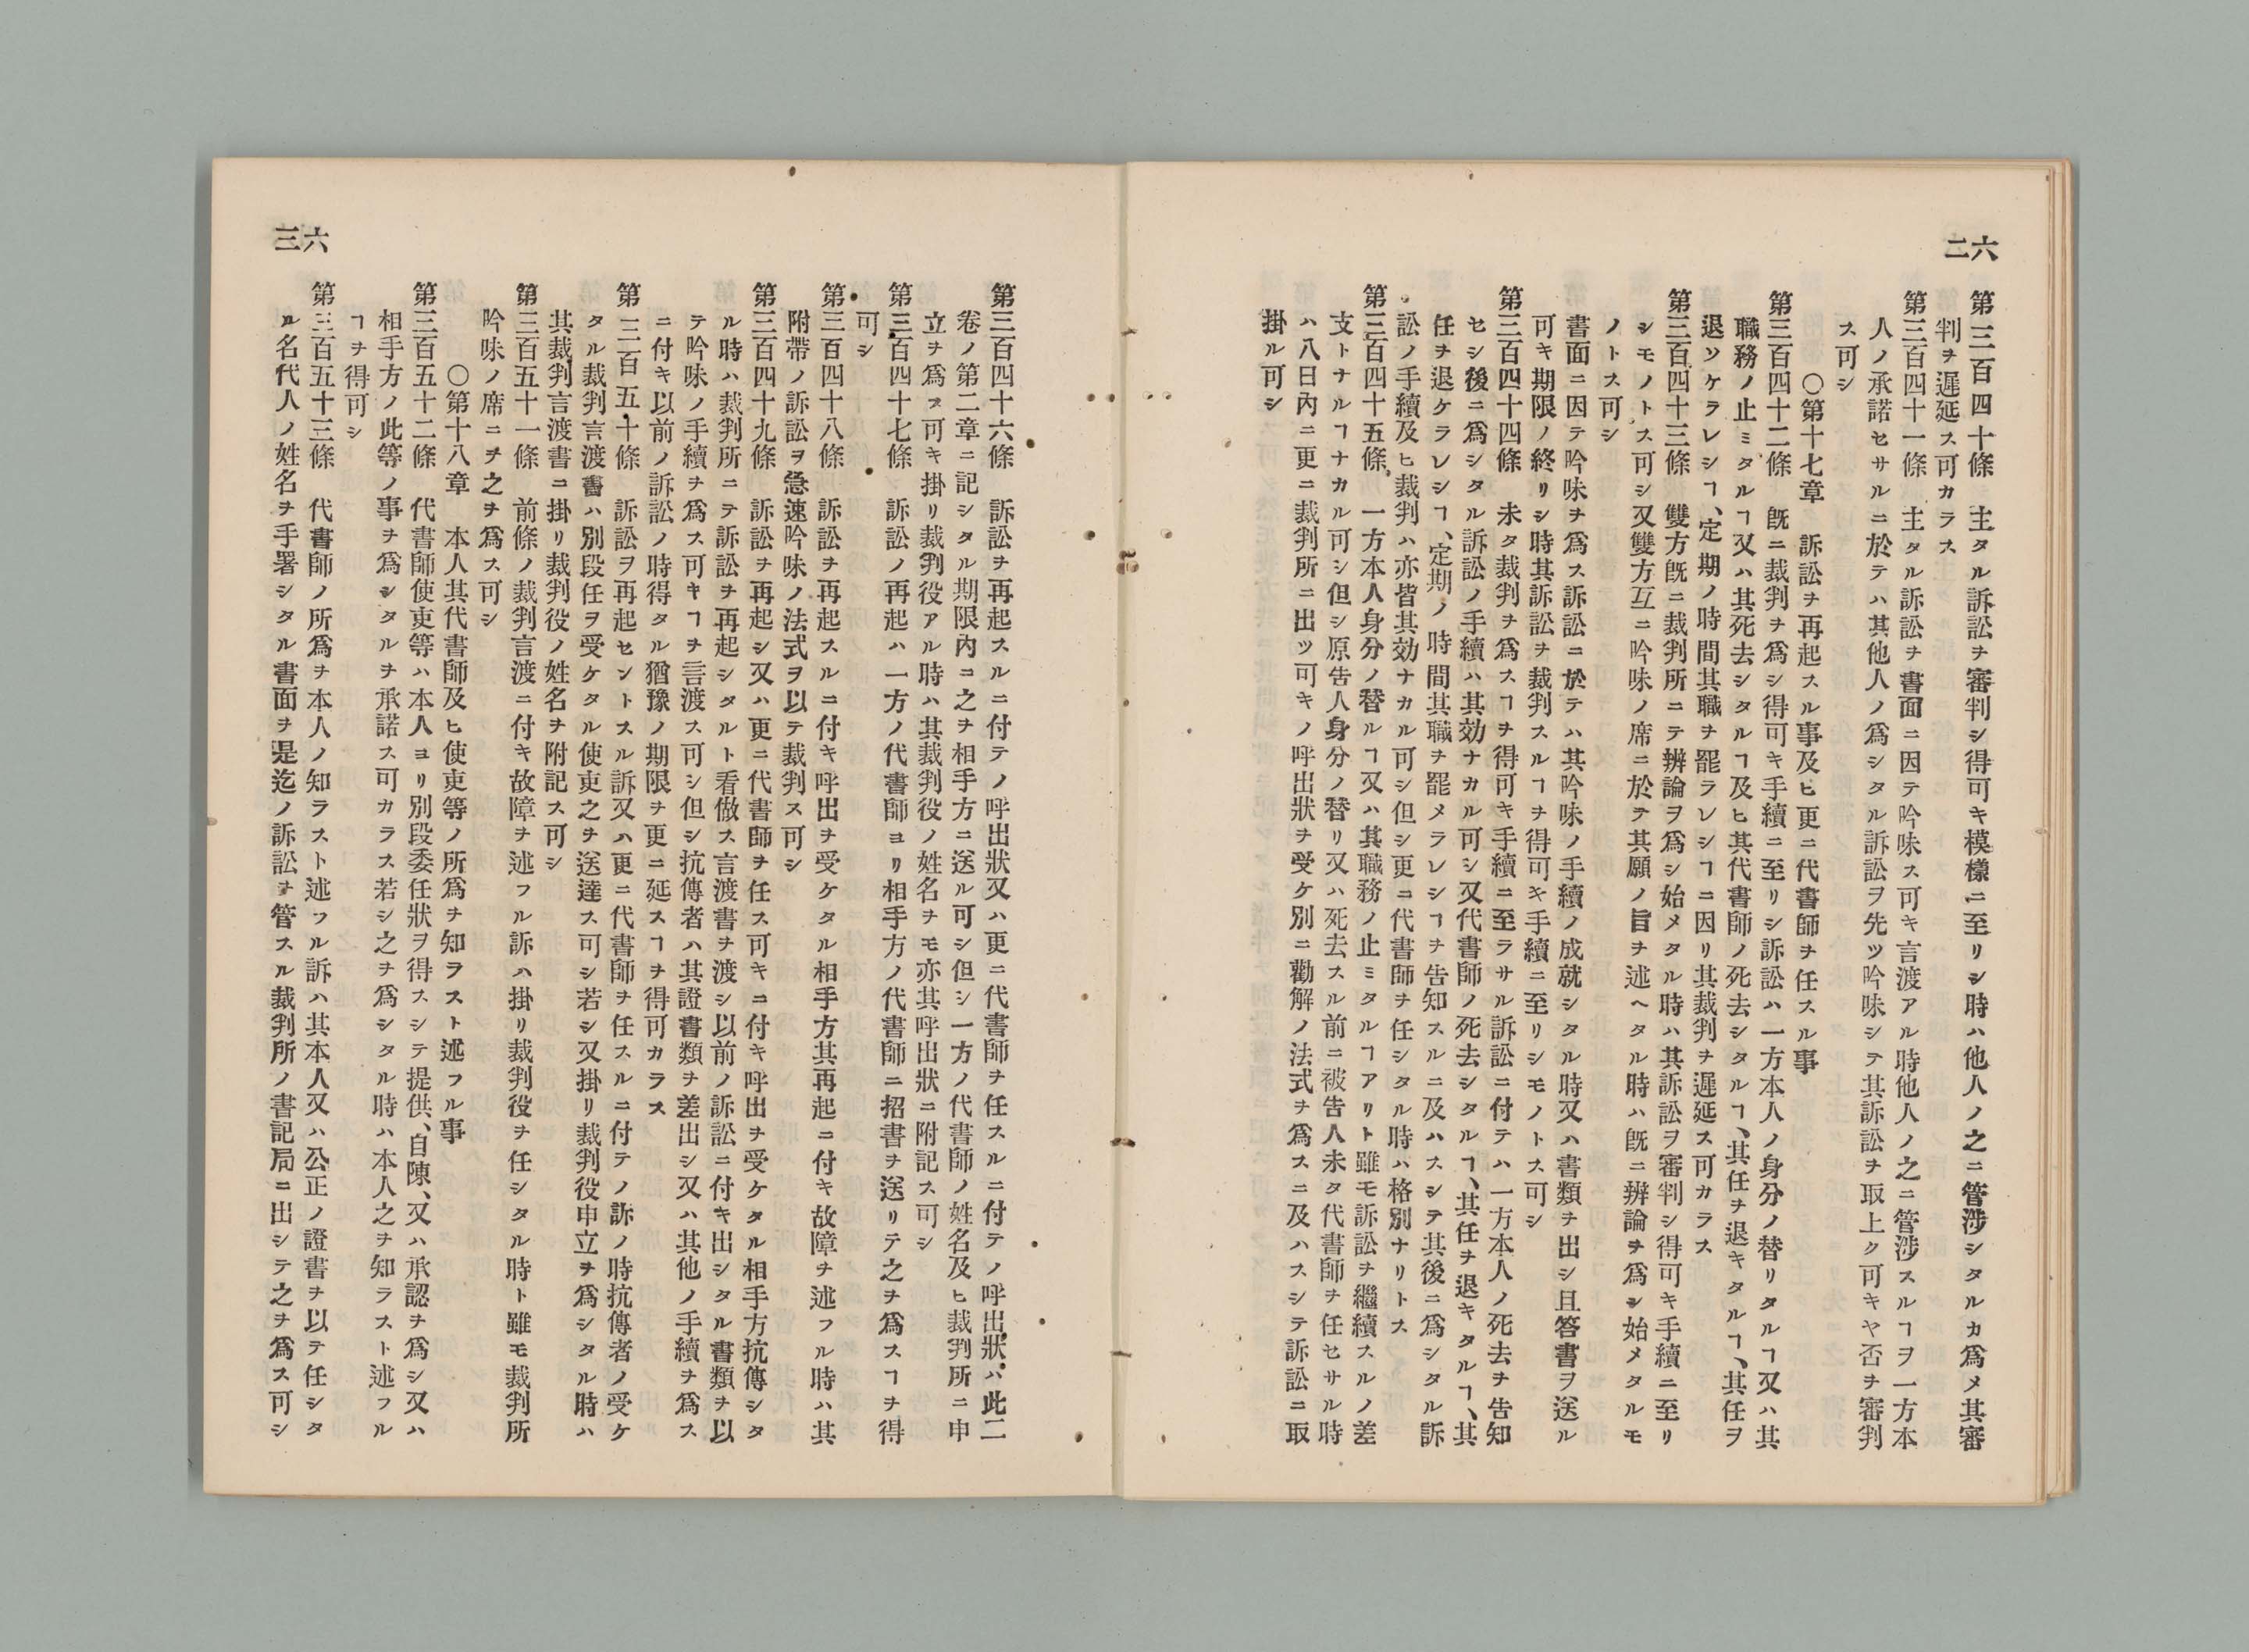 六二
第三百四十條　主タル訴訟ヲ審判シ得可キ模樣ニ至リシ時ハ他人ノ之ニ管渉シタルカ爲メ其審
判ヲ遲延ス可カラス
第三百四十一條　主タル訴訟ヲ書面ニ因テ吟味ス可キ言渡アル時他人ノ之ニ管渉スルヿヲ一方本
人ノ承諾セサルニ於テハ其他人ノ爲シタル訴訟ヲ先ツ吟味シテ其訴訟ヲ取上ク可キヤ否ヲ審判
ス可シ
〇第十七章　訴訟ヲ再起スル事及ヒ更ニ代書師ヲ任スル事
第三百四十二條　既ニ裁判ヲ爲シ得可キ手續ニ至リシ訴訟ハ一方本人ノ身分ノ替リタルヿ又ハ其
職務ノ止ミタルヿ又ハ其死去シタルヿ及ヒ其代書師ノ死去シタルヿ、其任ヲ退キタルヿ、其任ヲ
退ソケラレシヿ、定期ノ時間其職ヲ罷ラレシヿニ因リ其裁判ヲ遲延ス可カラス
第三百四十三條　雙方既ニ裁判所ニテ辨論ヲ爲シ始メタル時ハ其訴訟ヲ審判シ得可キ手續ニ至リ
シモノトス可シ又雙方互ニ吟味ノ席ニ於テ其願ノ旨ヲ述ヘタル時ハ既ニ辨論ヲ爲シ始メタルモ
ノトス可シ
書面ニ因テ吟味ヲ爲ス訴訟ニ於テハ其吟味ノ手續ノ成就シタル時又ハ書類ヲ出シ且答書ヲ送ル
可キ期限ノ終リシ時其訴訟ヲ裁判スルヿヲ得可キ手續ニ至リシモノトス可シ
第三百四十四條　未タ裁判ヲ爲スヿヲ得可キ手續ニ至ラサル訴訟ニ付テハ一方本人ノ死去ヲ告知
セシ後ニ爲シタル訴訟ノ手續ハ其効ナカル可シ又代書師ノ死去シタルヿ、其任ヲ退キタルヿ、其
任ヲ退ケラレシヿ、定期ノ時間其職ヲ罷メラレシヿヲ告知スルニ及ハスシテ其後ニ爲シタル訴
訟ノ手續及ヒ裁判ハ亦皆其効ナカル可シ但シ更ニ代書師ヲ任シタル時ハ格別ナリトス
第三百四十五條　一方本人身分ノ替ルヿ又ハ其職務ノ止ミタルヿアリト雖モ訴訟ヲ繼續スルノ差
支トナルヿナカル可シ但シ原告人身分ノ替リ又ハ死去スル前ニ被告人未タ代書師ヲ任セサル時
ハ八日內ニ更ニ裁判所ニ出ツ可キノ呼出狀ヲ受ケ別ニ勸解ノ法式ヲ爲スニ及ハスシテ訴訟ニ取
掛ル可シ
六三
第三百四十六條　訴訟ヲ再起スルニ付テノ呼出狀又ハ更ニ代書師ヲ任スルニ付テノ呼出狀ハ此二
卷ノ第二章ニ記シタル期限內ニ之ヲ相手方ニ送ル可シ但シ一方ノ代書師ノ姓名及ヒ裁判所ニ申
立ヲ爲ス可キ掛リ裁判役アル時ハ其裁判役ノ姓名ヲモ亦其呼出狀ニ附記ス可シ
第三百四十七條　訴訟ノ再起ハ一方ノ代書師ヨリ相手方ノ代書師ニ招書ヲ送リテ之ヲ爲スヿヲ得
可シ
第三百四十八條　訴訟ヲ再起スルニ付キ呼出ヲ受ケタル相手方其再起ニ付キ故障ヲ述フル時ハ其
附帶ノ訴訟ヲ急速吟味ノ法式ヲ以テ裁判ス可シ
第三百四十九條　訴訟ヲ再起シ又ハ更ニ代書師ヲ任ス可キニ付キ呼出ヲ受ケタル相手方抗傳シタ
ル時ハ裁判所ニテ訴訟ヲ再起シタルト看倣ス言渡書ヲ渡シ以前ノ訴訟ニ付キ出シタル書類ヲ以
テ吟味ノ手續ヲ爲ス可キヿヲ言渡ス可シ但シ抗傳者ハ其證書類ヲ差出シ又ハ其他ノ手續ヲ爲ス
ニ付キ以前ノ訴訟ノ時得タル猶豫ノ期限ヲ更ニ延スヿヲ得可カラス
第三百五十條　訴訟ヲ再起セントスル訴又ハ更ニ代書師ヲ任スルニ付テノ訴ノ時抗傳者ノ受ケ
タル裁判言渡書ハ別段任ヲ受ケタル使吏之ヲ送達ス可シ若シ又掛リ裁判役申立ヲ爲シタル時ハ
其裁判言渡書ニ掛リ裁判役ノ姓名ヲ附記ス可シ
第三百五十一條　前條ノ裁判言渡ニ付キ故障ヲ述フル訴ハ掛リ裁判役ヲ任シタル時ト雖モ裁判所
吟味ノ席ニテ之ヲ爲ス可シ
〇第十八章　本人其代書師及ヒ使吏等ノ所爲ヲ知ラスト述フル事
第三百五十二條　代書師使吏等ハ本人ヨリ別段委任狀ヲ得スシテ提供、自陳、又ハ承認ヲ爲シ又ハ
相手方ノ此等ノ事ヲ爲シタルヲ承諾ス可カラス若シ之ヲ爲シタル時ハ本人之ヲ知ラスト述フル
ヿヲ得可シ
第三百五十三條　代書師ノ所爲ヲ本人ノ知ラスト述フル訴ハ其本人又ハ公正ノ證書ヲ以テ任シタ
ル名代人ノ姓名ヲ手署シタル書面ヲ是迄ノ訴訟ヲ管スル裁判所ノ書記局ニ出シテ之ヲ爲ス可シ